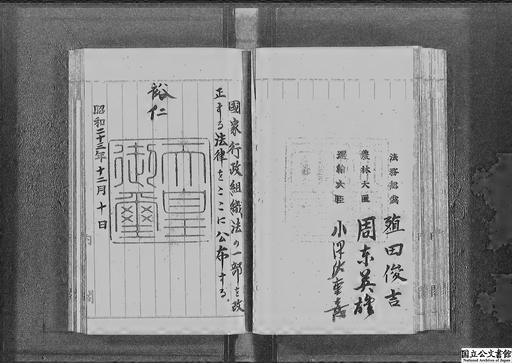 法務総裁 殖田俊吉
農林大臣 周東英雄
運輸大臣 小澤佐重喜
国家行政組織法の一部を改
正する法律をここに公布する。
裕仁
天皇御璽
昭和二十三年十二月十日
国立公文書館
National Archives of Japan